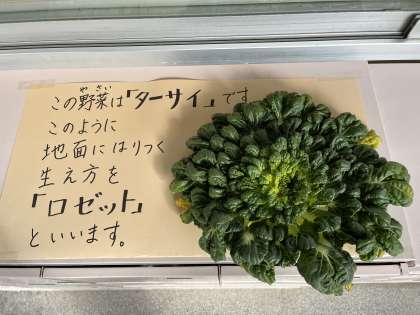 この野菜は「ターサイ」です
このように
地面にはりつく
生え方を
「ロゼット」
といいます。